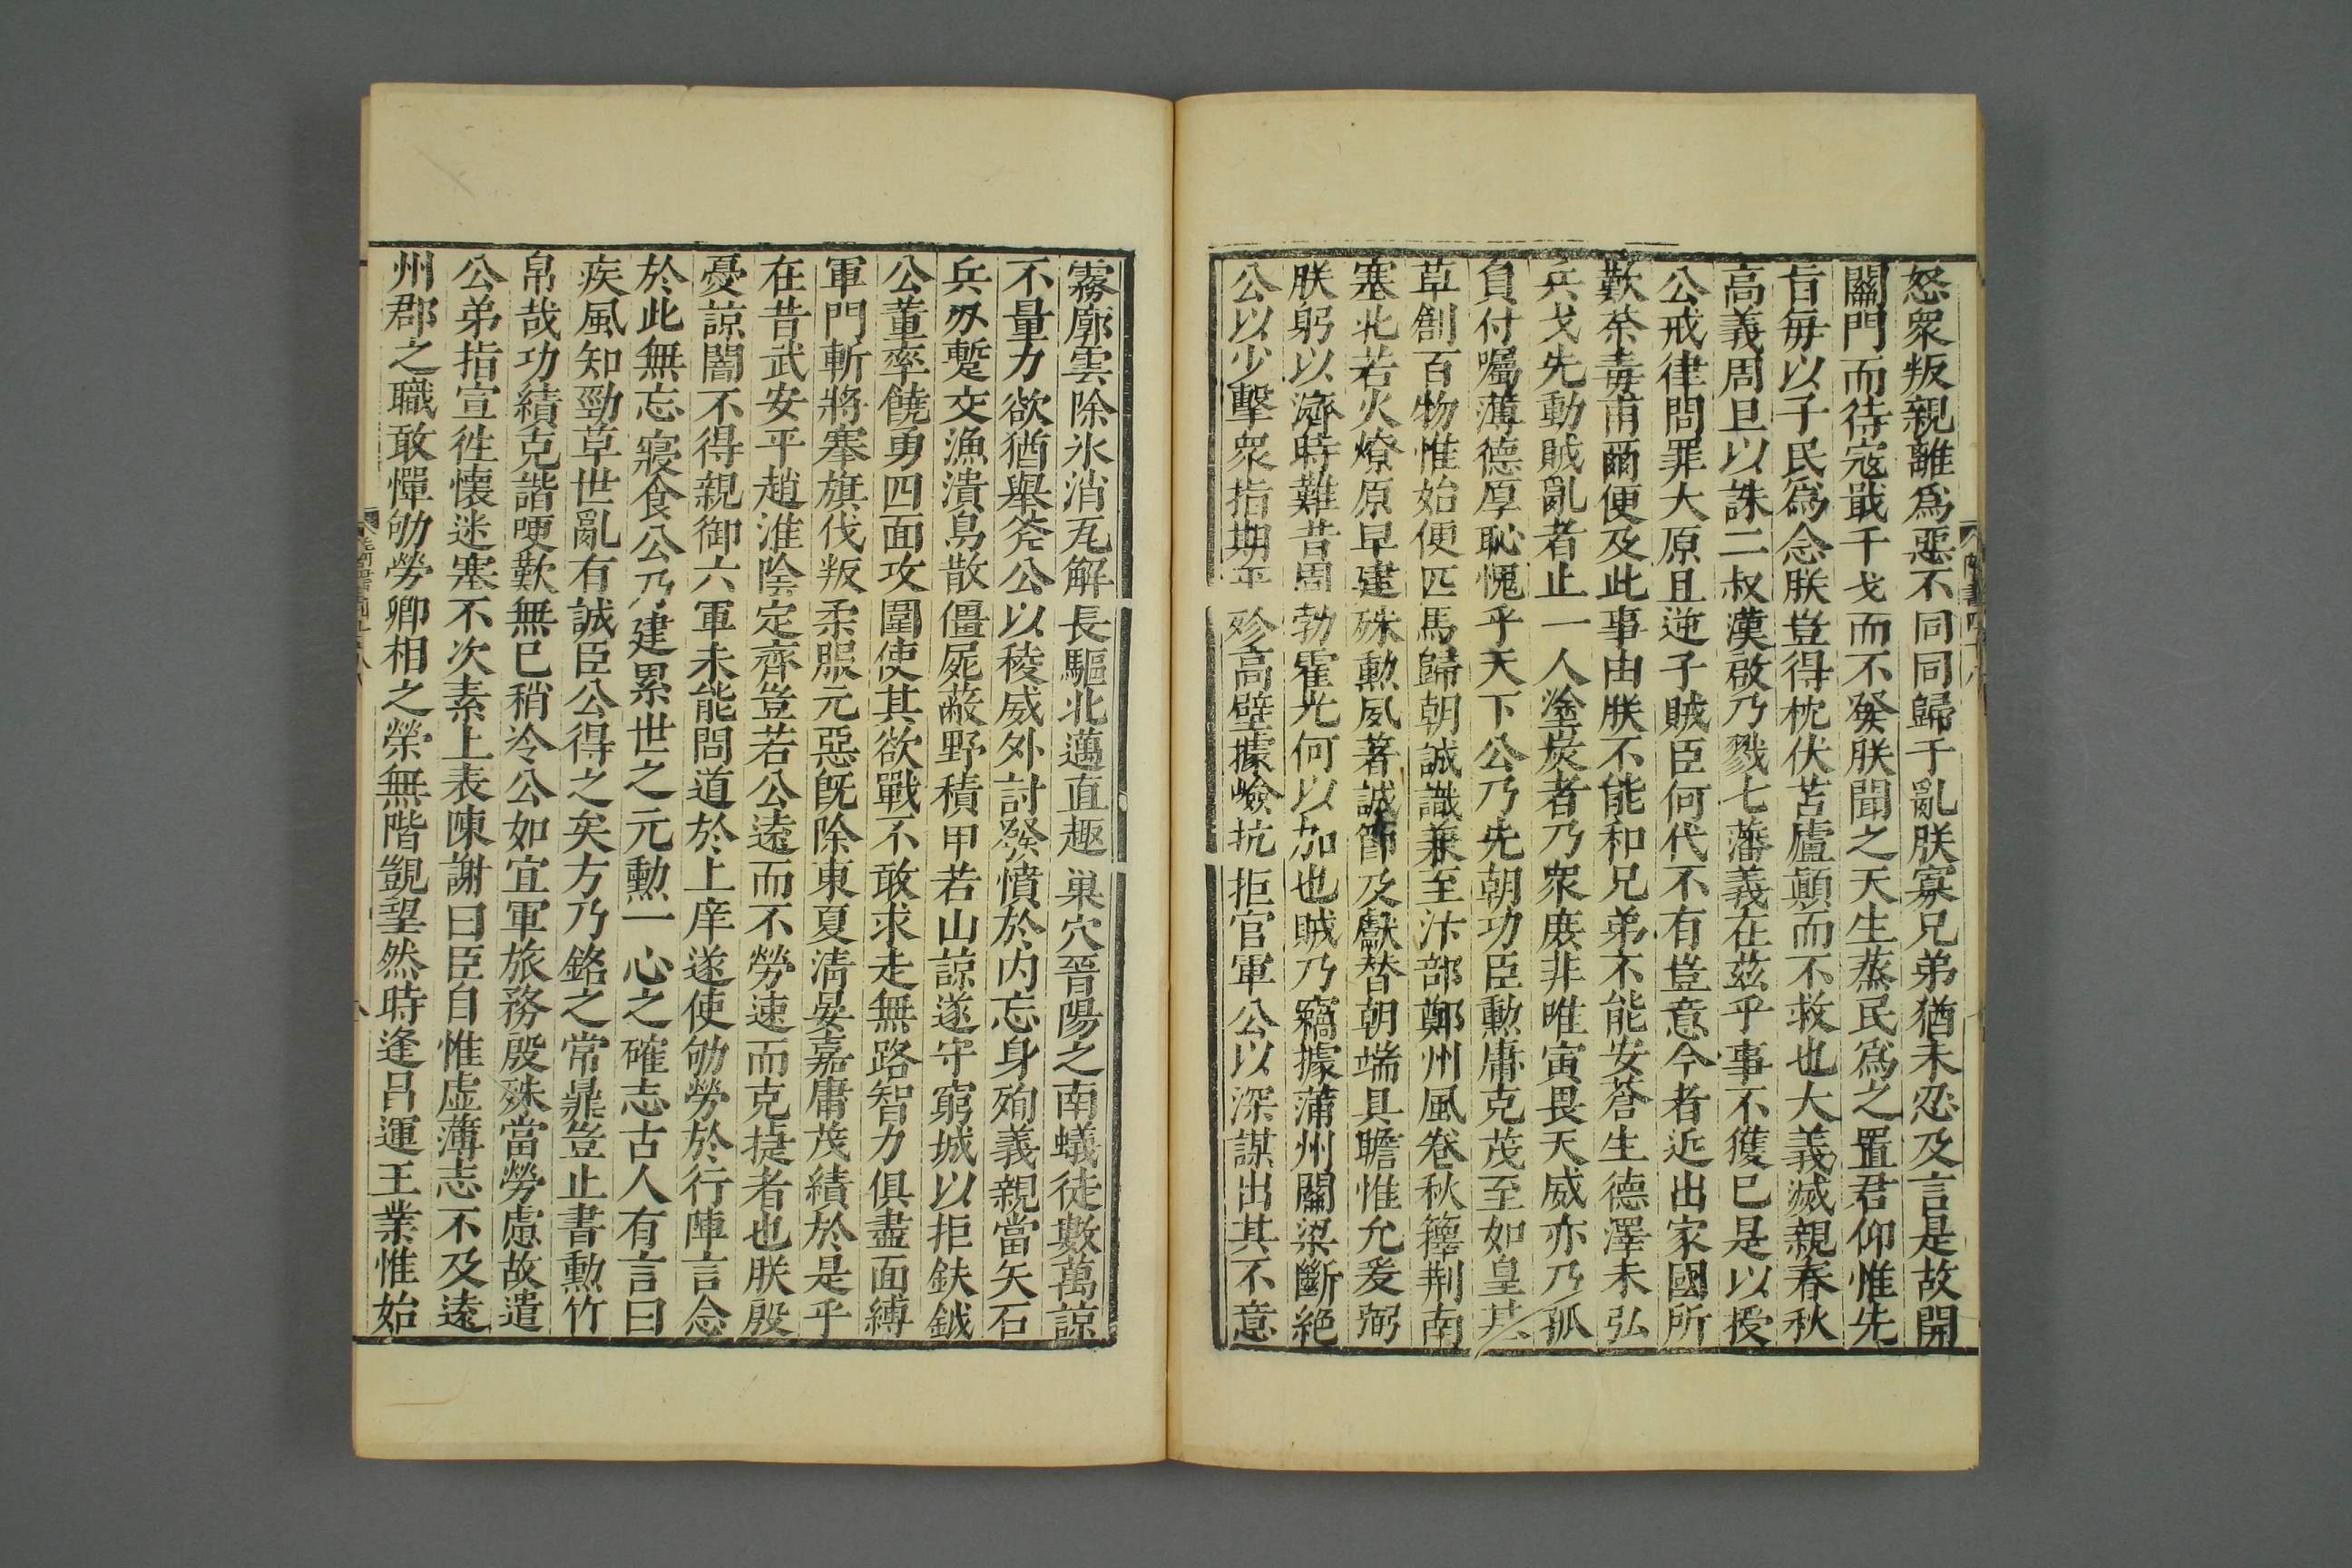 怒衆叛親離爲惡不同同歸于亂朕寡兄弟猶未忍及言是故開
關門而待寇戢干戈而不發朕聞之天生蒸民爲之置君仰惟先
旨每以子民爲念朕豈得枕伏苫廬顛而不救也大義滅親春秋
高義周旦以誅二叔漢啟乃戮七藩義在茲乎事不獲已是以授
公戒律問罪大原且逆子賊臣何代不有豈意今者近出家國所
歎荼毒甫爾便及此事由朕不能和兄弟不能安蒼生德澤未弘
兵戈先動賊亂者止一人塗炭者乃衆庶非唯寅畏天威亦乃孤
負付囑薄德厚恥愧乎天下公乃先朝功臣勲庸克茂至如皇基
草創百物惟始便匹馬歸朝誠識兼至汴部鄭州風卷秋籜荆南
塞北若火燎原早建殊勲夙著誠節及獻替朝端具瞻惟允爰弼
朕躬以濟時難昔周勃霍光何以加也賊乃竊據蒲州關梁斷絶
公以少擊衆指期平殄高壁據嶮抗拒官軍公以深謀出其不意
霧廓雲除氷消瓦解長驅北邁直趣巢穴晉陽之南蟻徒數萬諒
不量力欲猶舉斧公以稜威外討發憤於内忘身殉義親當矢石
兵刅蹔交漁潰鳥散僵屍蔽野積甲若山諒遂守窮城以拒鈇鉞
公董率饒勇四面攻圍使其欲戰不敢求走無路智力俱盡面縛
軍門斬將搴旗伐叛柔服元惡旣除東夏淸晏嘉庸茂績於是乎
在昔武安平趙淮陰定齊豈若公遠而不勞速而克㨗者也朕殷
憂諒闇不得親御六軍未能問道於上庠遂使劬勞於行陣言念
於此無忘寢食公乃建累世之元勲一心之確志古人有言曰
疾風知勁草世亂有誠臣公得之矣方乃銘之常鼎豈止書勲竹
帛哉功績克諧哽歎無已稍冷公如宜軍旅務殷殊當勞慮故遣
公弟指宣徃懷迷塞不次素上表陳謝曰臣自惟虚薄志不及遠
州郡之職敢憚劬勞卿相之榮無階覬望然時逢吕運王業惟始